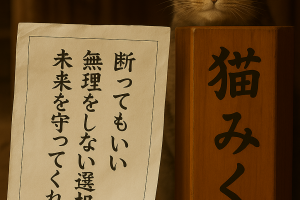 断ってもいい
無理をしない選
未来を守ってくれ
猫みく